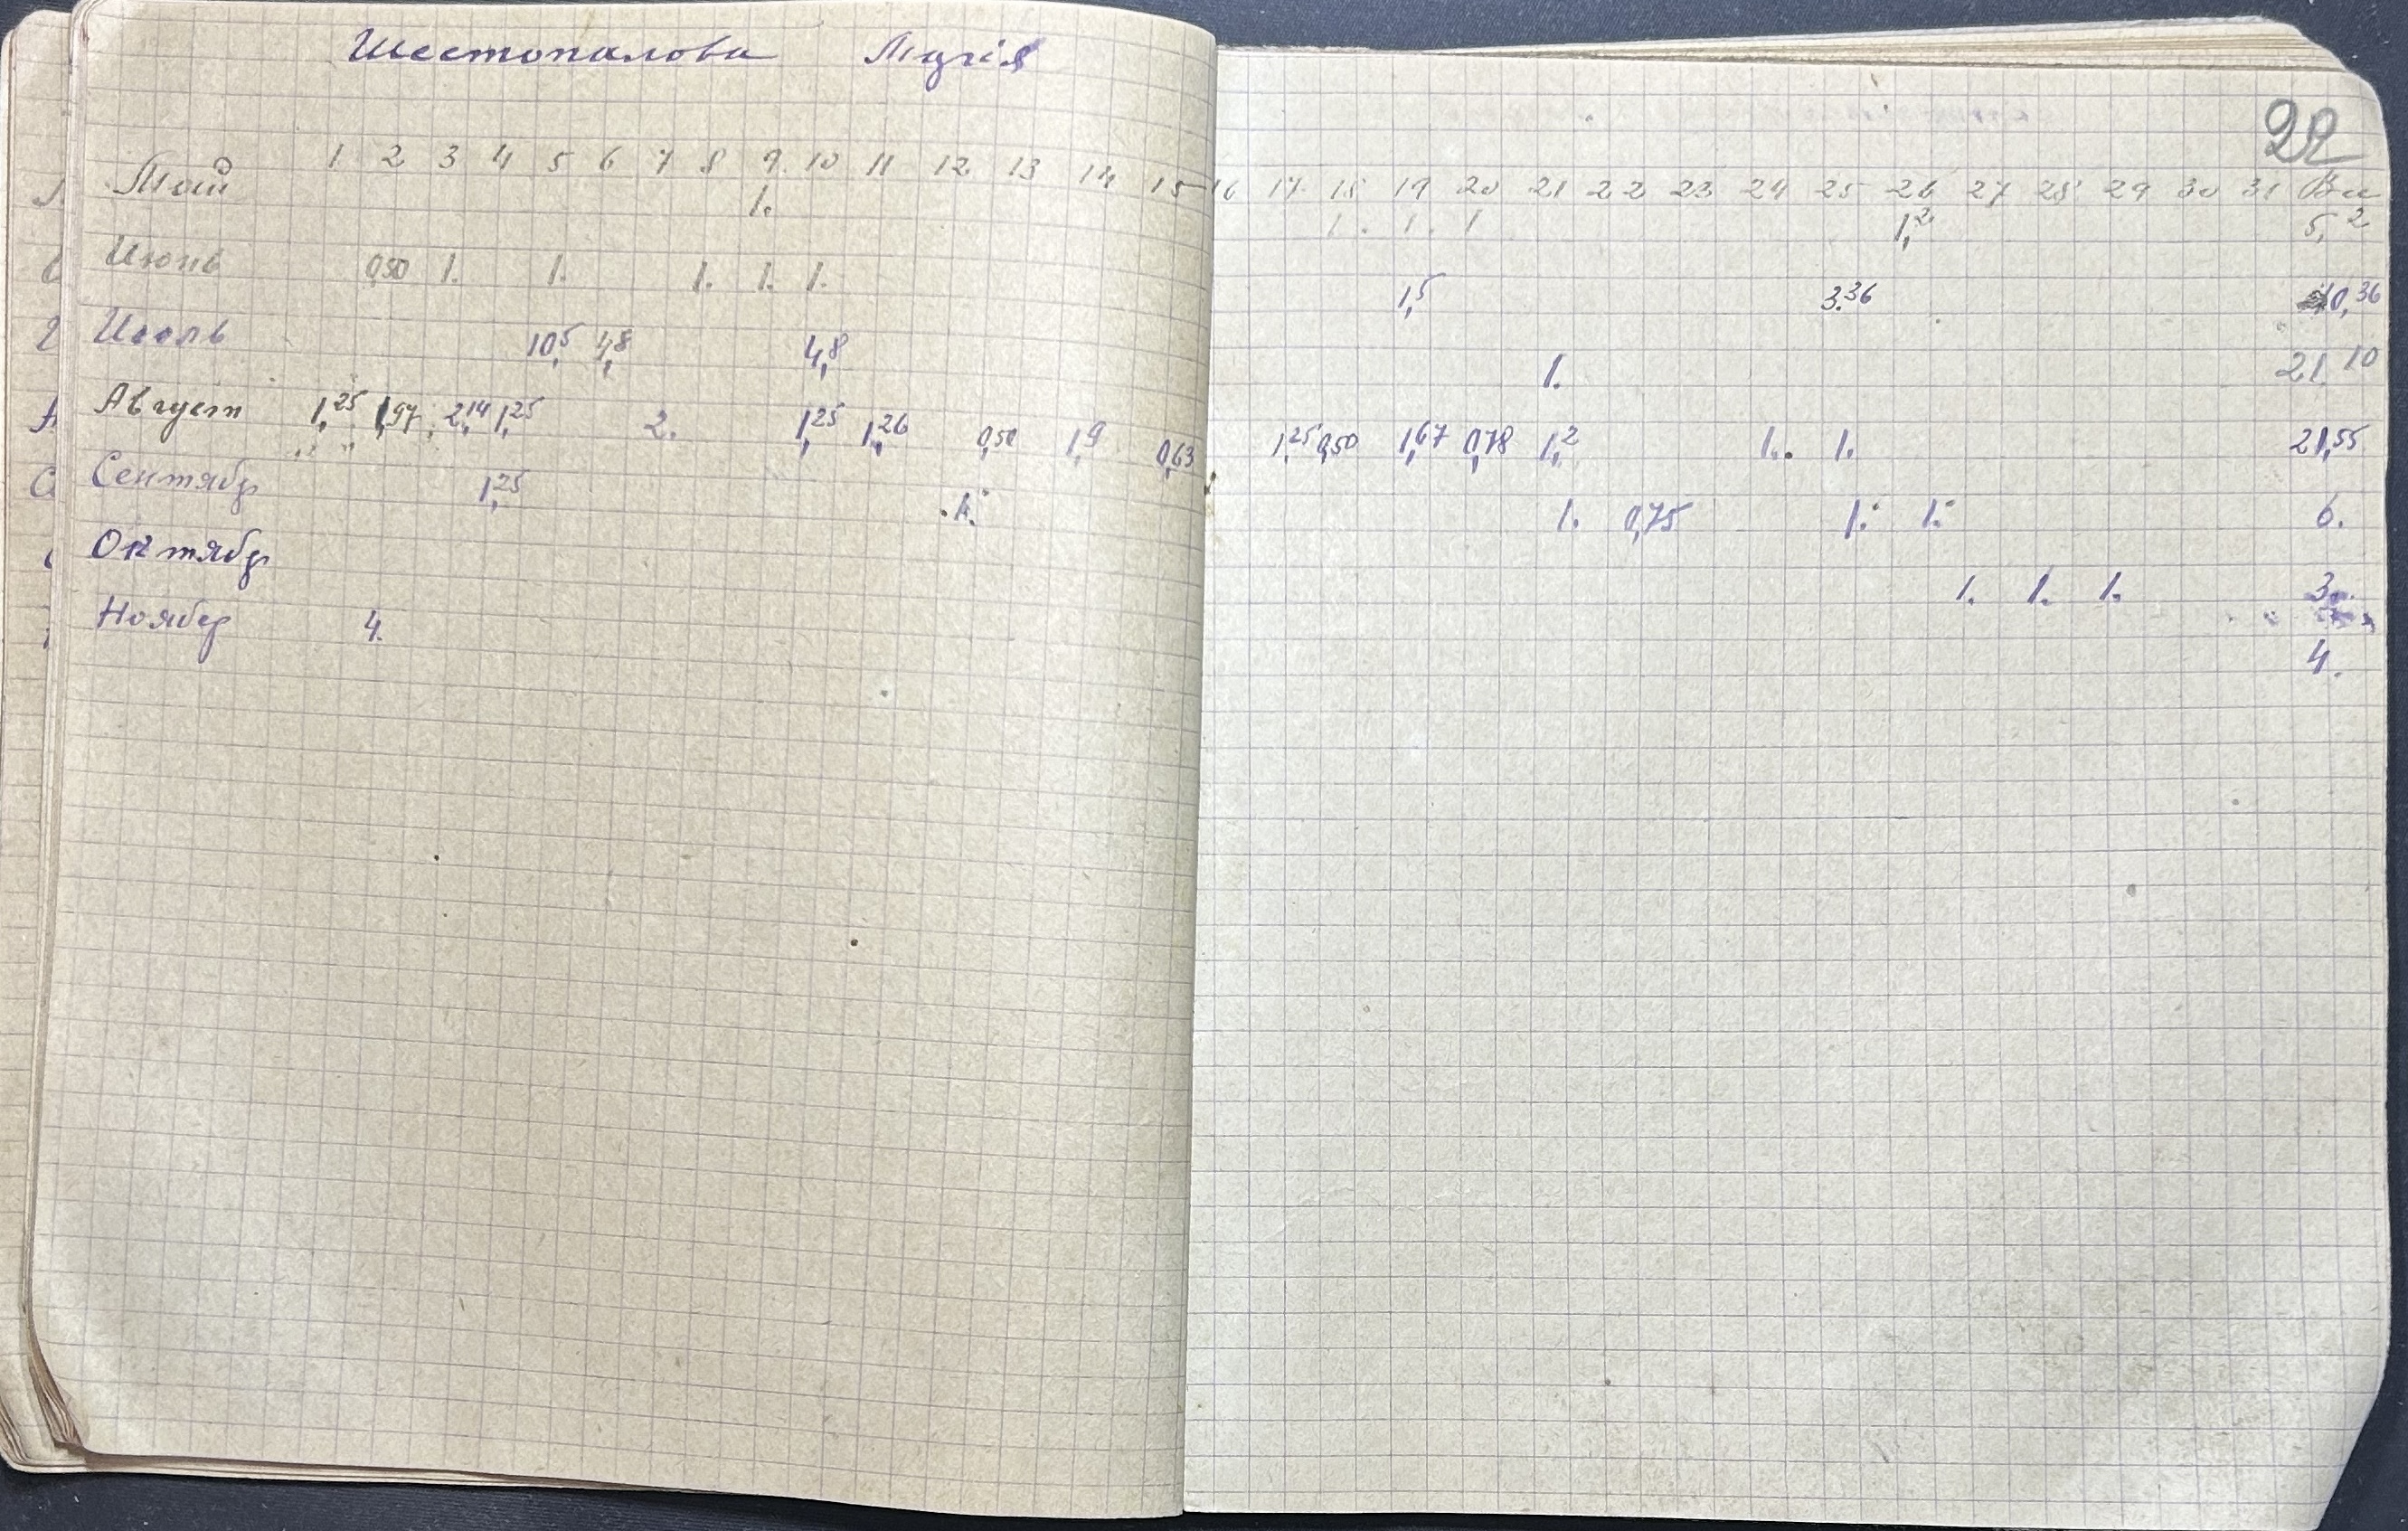 Шестопалова Марія
22
Май 1 2 3 4 5 6 7 8 9. 10 11 12 13 14 15 16 17 18 19 20 21 22 23 24 25 26 27 28 29 30 31
1. 1. 1. 1 1,2 5,2
Июнь 0,50 1. 1. 1. 1. 1. 1,5 3.36 10,36
Июль 10,5 4,8 4,8 1. 21.10
Август 1,25 1,97 2,14 1,25 2. 1,25 1,26 0,50 1,9 0,63 1,25 0,50 1,67 0,78 1,2 1. 1. 21,55
Сентябр 1,25 1. 1. 0,75 1. 1. 6.
Октябр 1. 1. 1. 3.
Ноябр 4. 4.